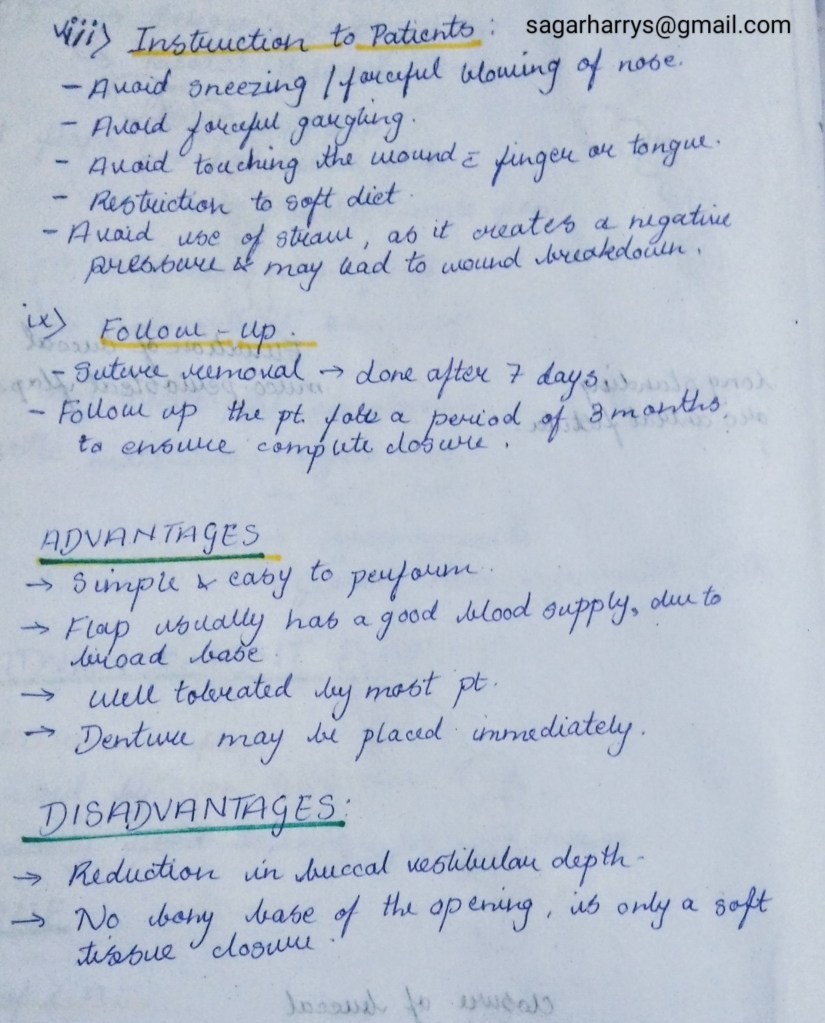 viii) Instruction to Patients :
sagarharrys@gmail.com
- Avoid sneezing / forceful blowing of nose.
- Avoid forceful gargling.
- Avoid touching the wound c̄ finger or tongue.
- Restriction to soft diet.
- Avoid use of straw, as it creates a negative
pressure & may lead to wound breakdown.
ix) Follow - up.
- Suture removal → done after 7 days.
- Follow up the pt. for a period of 3 months
to ensure complete closure.
ADVANTAGES
→ Simple & easy to perform.
→ Flap usually has a good blood supply, due to
broad base
→ Well tolerated by most pt.
→ Denture may be placed immediately.
DISADVANTAGES:
→ Reduction in buccal vestibular depth-
→ No bony base of the opening, is only a soft
tissue closure.
closure of buccal